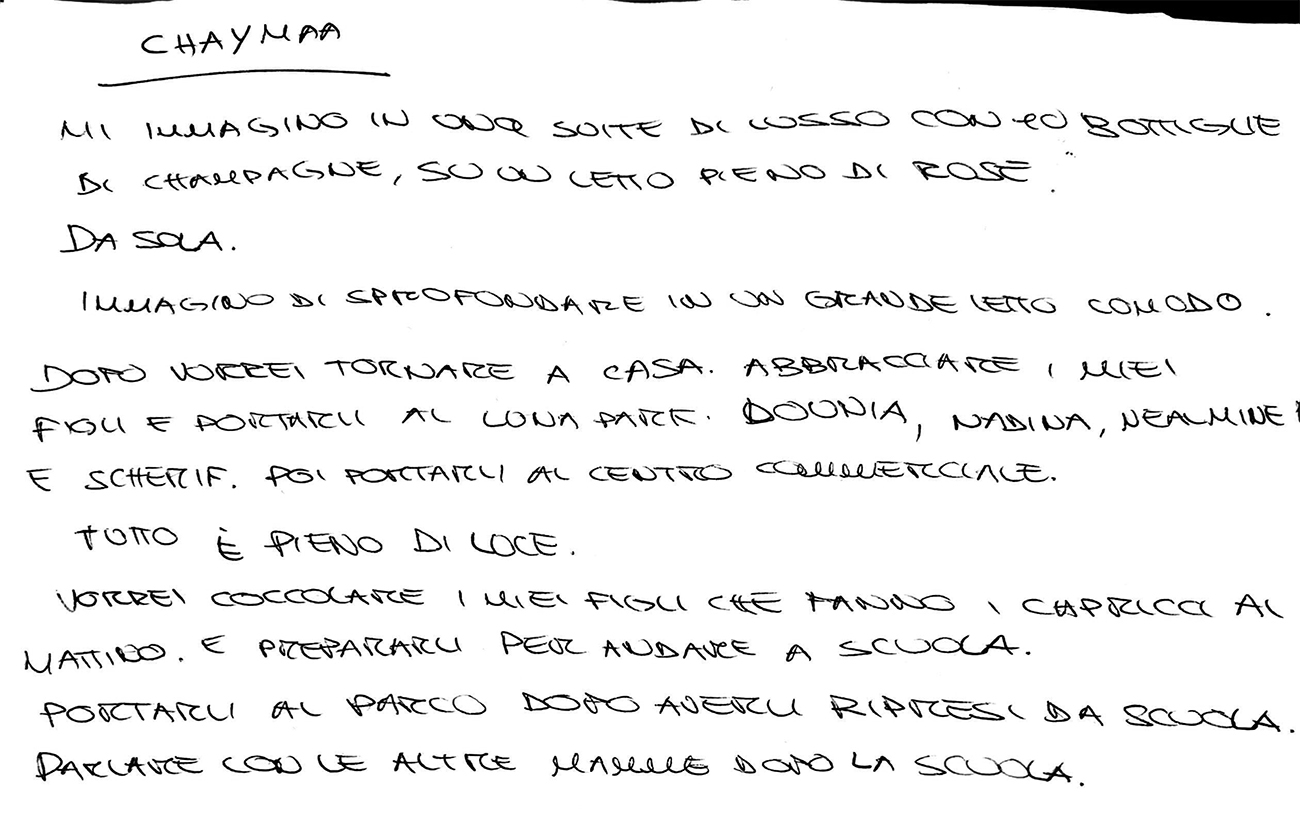 CHAYMAA
MI IMMAGINO IN UNA SUITE DI LUSSO CON 20 BOTTIGLIE
DI CHAMPAGNE, SU UN LETTO PIENO DI ROSE.
DA SOLA.
IMMAGINO DI SPROFONDARE IN UN GRANDE LETTO COMODO.
DOPO VORREI TORNARE A CASA. ABBRACCIARE I MIEI
FIGLI E PORTARLI AL LUNA PARK. DOUNIA, NADINA,
E SCHERIF. POI PORTARLI AL CENTRO COMMERCIALE.
TUTTO È PIENO DI LUCE.
VORREI COCCOLARE I MIEI FIGLI CHE FANNO I CAPRICCI AL
MATTINO. E PREPARARLI PER ANDARE A SCUOLA.
PORTARLI AL PARCO DOPO AVERLI RIPRESI DA SCUOLA.
PARLARE CON LE ALTRE MAMME DOPO LA SCUOLA.